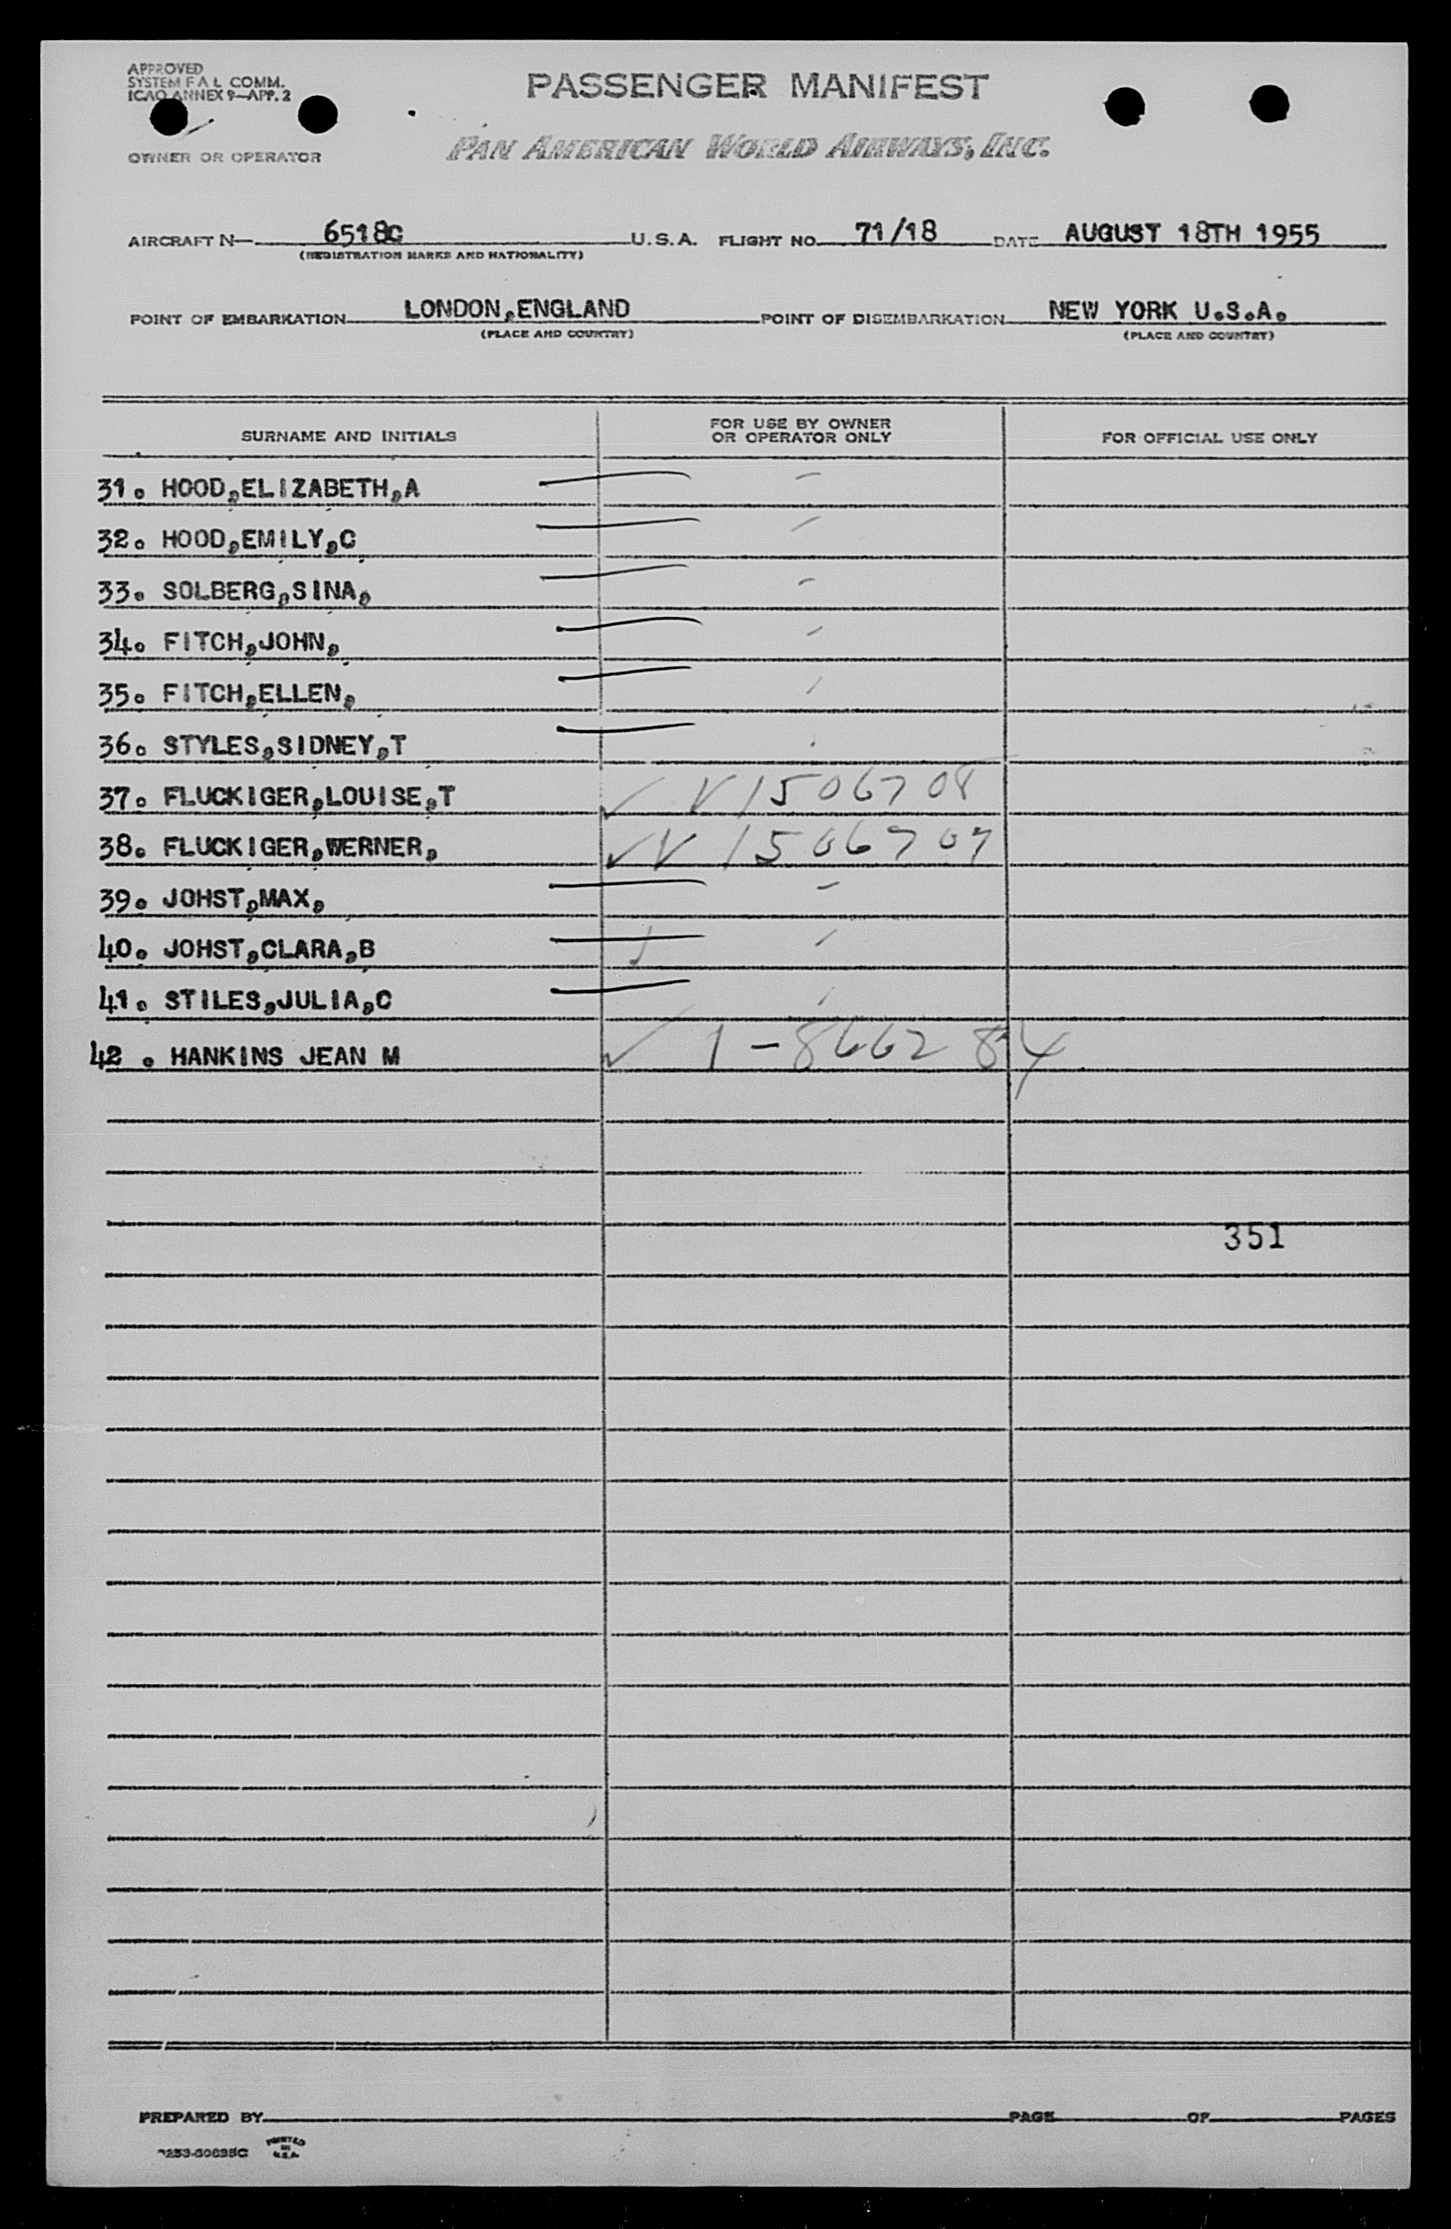 APPROVED
SYSTEM F A L COMM.
ICAO ANNEX 9—APP. 2
PASSENGER MANIFEST
OWNER OR OPERATOR
PAN AMERICAN WORLD AIRWAYS, INC.
AIRCRAFT N— 6518C U. S. A. FLIGHT NO. 71/18 DATE AUGUST 18TH 1955
(REGISTRATION MARKS AND NATIONALITY)
POINT OF EMBARKATION LONDON,ENGLAND POINT OF DISEMBARKATION NEW YORK U.S.A.
(PLACE AND COUNTRY) (PLACE AND COUNTRY)
SURNAME AND INITIALS
FOR USE BY OWNER
OR OPERATOR ONLY
FOR OFFICIAL USE ONLY
31. HOOD,ELIZABETH,A
32. HOOD,EMILY,C
33. SOLBERG,SINA,
34. FITCH,JOHN,
35. FITCH,ELLEN,
36. STYLES,SIDNEY,T
37. FLUCKIGER,LOUISE,T V1506708
38. FLUCKIGER,WERNER, V 1506707
39. JOHST,MAX,
40. JOHST,CLARA,B
41. STILES,JULIA,C
42 . HANKINS JEAN M 1-866284
351
PREPARED BY PAGE OF PAGES
PRINTED
IN
U.S.A.